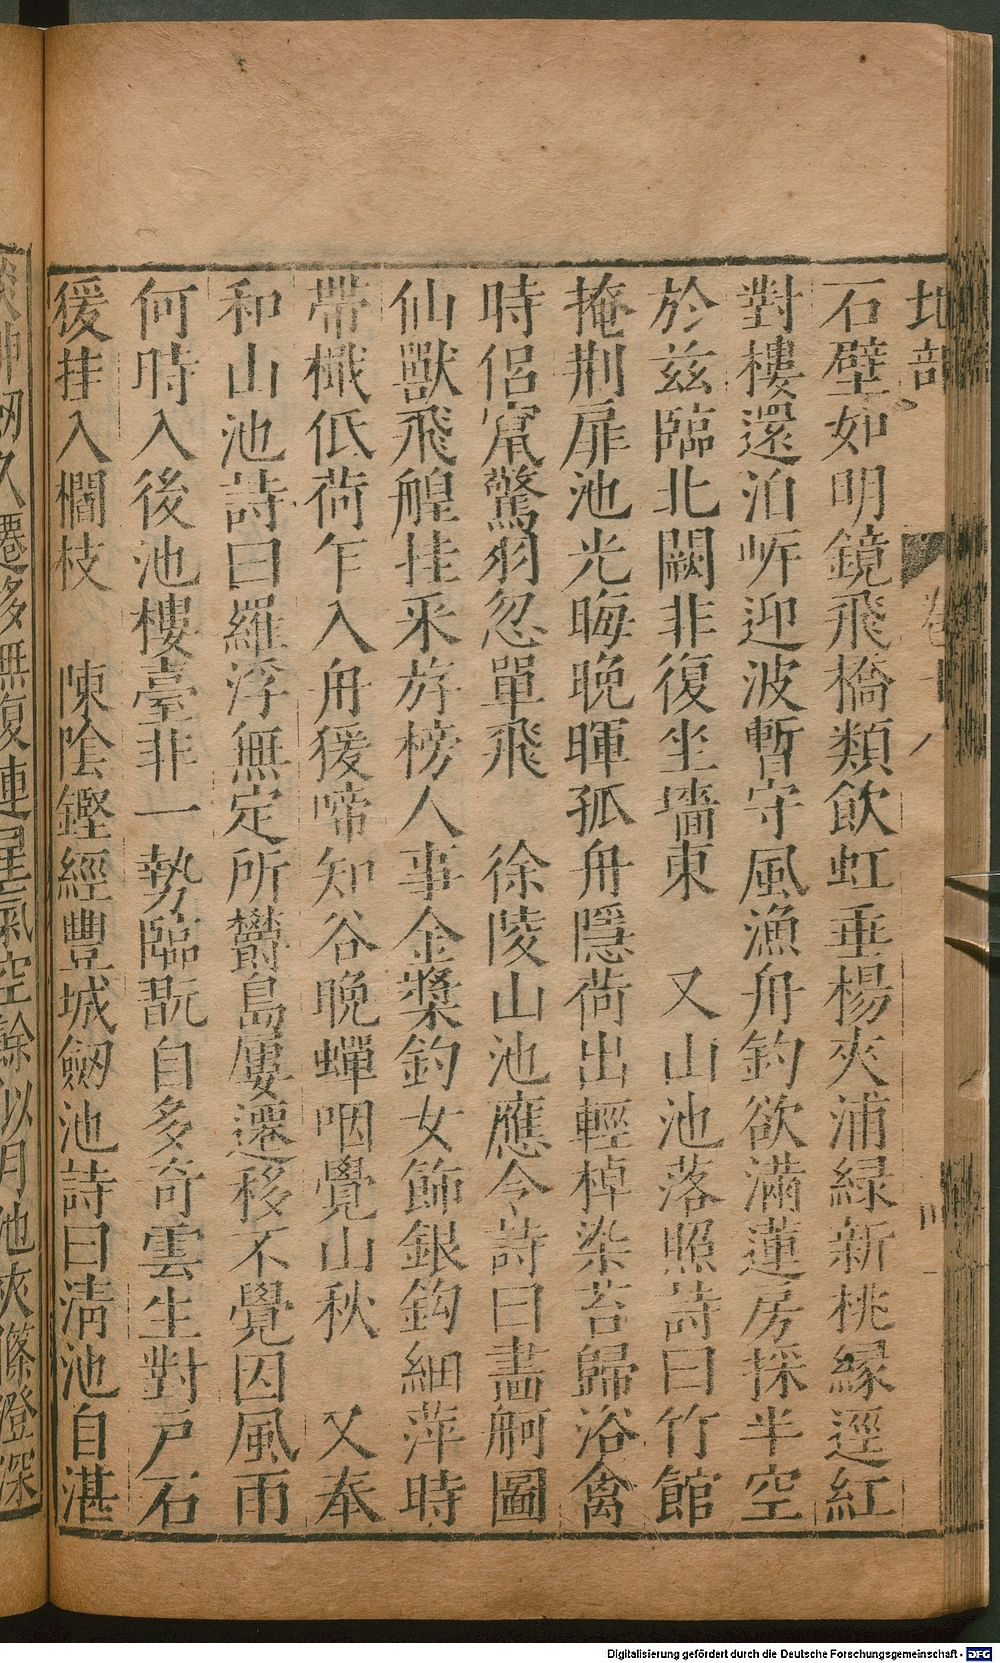 地部
石壁如明鏡飛橋類飲虹垂楊夾浦緑新桃縁逕紅
對樓還泊岍迎波暫守風漁舟釣欲滿蓮房採半空
於兹臨北闕非復坐墻東 又山池落照詩曰竹館
掩荆扉池光晦晚暉孤舟隱荷出輕棹染苔歸浴禽
時侣窺驚羽忽單飛 徐陵山池應令詩曰畫舸圖
仙獸飛艎挂釆斿榜人事金槳釣女飾銀鈎細萍時
帶檝低荷乍入舟猨啼知谷晚蟬咽覺山秋 又奉
和山池詩曰羅浮無定所欝島屢遷移不覺因風雨
何時入後池樓臺非一勢臨翫自多奇雲生對戸石
猨挂入櫚枝 陳陰鏗經豐城劒池詩曰清池自湛
淡神劒久遷移無復連星氣空餘似月池夾篠澄深
Digitalisierung gefördert durch die Deutsche Forschungsgemeinschaft - DFG